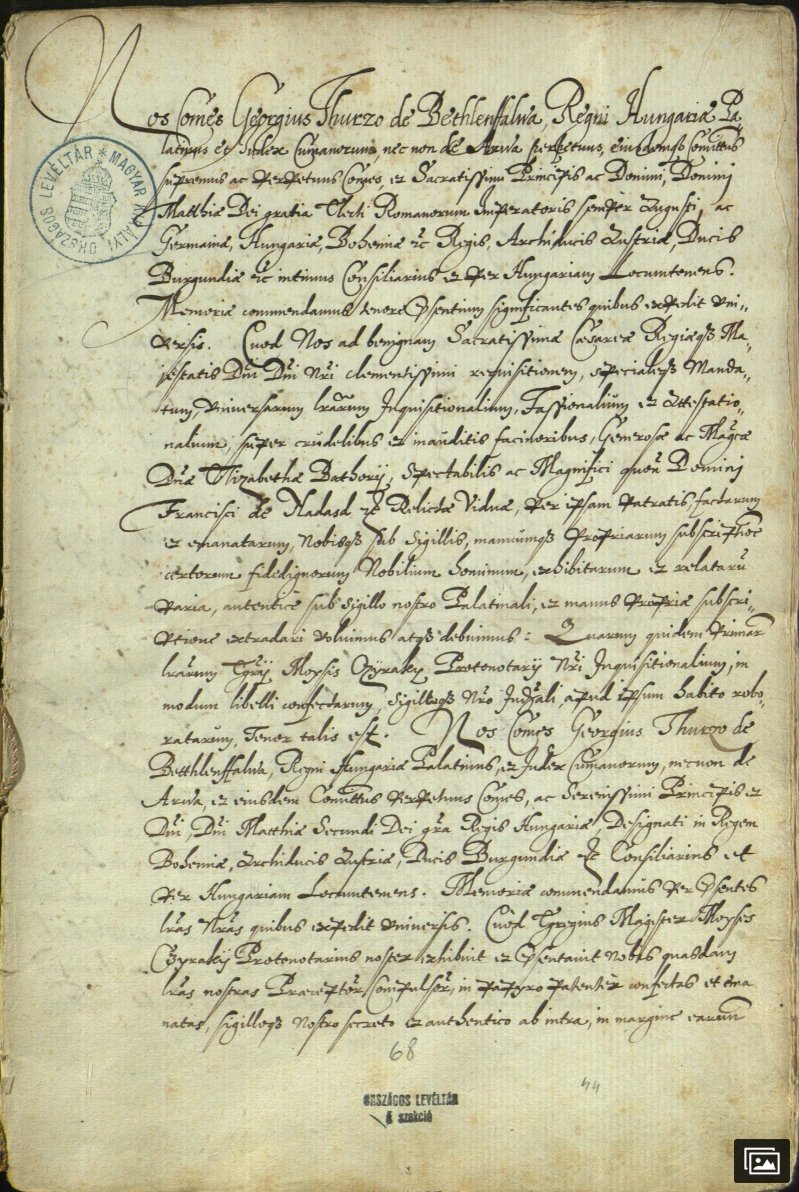 Nos Comes Georgius Thurzo de Bethlenffalwa, Regni Hungariæ Pa-
latinus et Iudex Cumanorum, nec non de Arwa perpetuus, eiusdemq3 Comittus
supremus ac Perpetuus Comes, et Sacratissimi Principis ac Domini, Dominj
Matthiæ Dei gratia Electi Romanorum Imperatoris semper Augusti, ac
Germaniæ, Hungariæ, Bohemiæ etc Regis, Archiducis Austriæ, Ducis
Burgundiæ etc intimus Consiliarius et Per Hungariam Locumtenens.
Memoriæ commendamus tenore Psentium significantes quibus expedit vni„
versis. Quod Nos ad benignam Sacratissimæ Cæsareæ Regiæq3 Ma„
iestatis Dni Dni Nri clementissimi requisitionem, specialeq3 Manda„
tum, vniversarum lrarum Inquisitionalium, Fassionalium et Attestatio„
nalium, super crudelibus et inauditis facinoribus, Generosæ ac Magcæ
Dnæ Elizabethæ Bathorÿ, Spectabilis ac Magnifici quon Dominj
Francisci de Nadasd etc Relictæ Viduæ, per ipsam patratis, factarum
et emanatarum, Nobisq3 sub sigillis, manuumq3 propriarum subscriptione
certorum fidedignorum Nobilium hominum, exhibitarum et relataru
Paria, autentice sub sigillo nostro Palatinali, et manus propriæ subscri„
ptione extradari voluimus atq3 debuimus: Quarum quidem Primar
lrarum Egrÿ Moysis Czyrakÿ Protonotarÿ Nri Inquisitionalium, in
modum libelli confectarum, sigilloq3 Nro Iudjali apud ipsum habito robo„
ratarum, Tenor talis est. Nos Comes Georgius Thurzo de
Betthlenffalwa, Regni Hungariæ Palatinus, et Iudex Cumanorum, necnon de
Arwa, et eiusdem Comittus Perpetuus Comes, ac Serenissimi Principis et
Dni, Dni Matthiæ Secundi Dei gra Regis Hungariæ, Designati in Regem
Bohemiæ, Archiducis Austriæ, Ducis Burgundiæ etc Consiliarius et
Per Hungariam Locumtenens. Memoriæ commendamus Per Psentes
lras Nras quibus expedit vniversis. Quod Egregius Magister Moyses
Czyrakÿ Protonotarius noster exhibuit et Psentauit Nobis quasdam
lras nostras Præceptor Compulsor, in Papyro Patenter confectas et ema
natas, sigilloq3 Nostro secreto et authentico ab intra, in margine earum
68
44
ORSZÁGOS LEVÉLTÁR
szekció
MAGYAR KIRÁLYI ORSZÁGOS LEVÉLTÁR